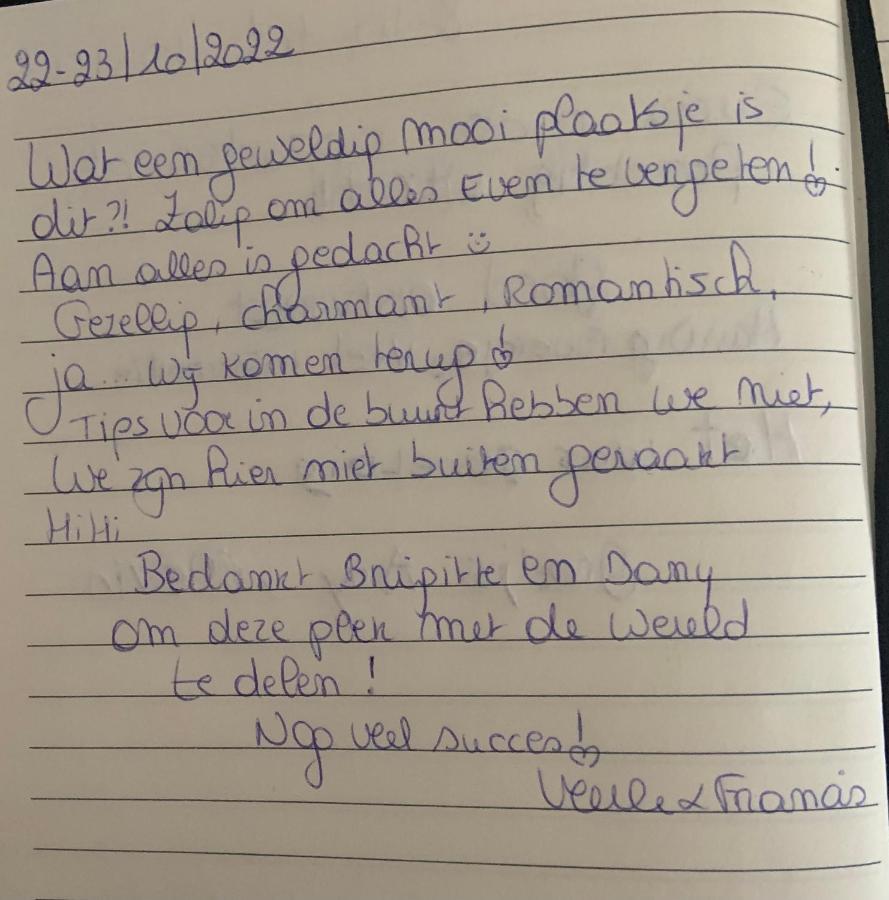 22-23/10/2022
Wat een geweldig mooi plaatsje is
dit?! Zalig om alles Even te vergeten!
Aan alles is gedacht ☺
Gezellig, charmant, Romantisch,
ja... wij komen terug!
Tips voor in de buurt hebben we niet,
We zijn hier niet buiten geraakt
HiHi
Bedankt Brigitte en Dany
om deze plek met de wereld
te delen!
Nog veel succes!
Veerle & Francis